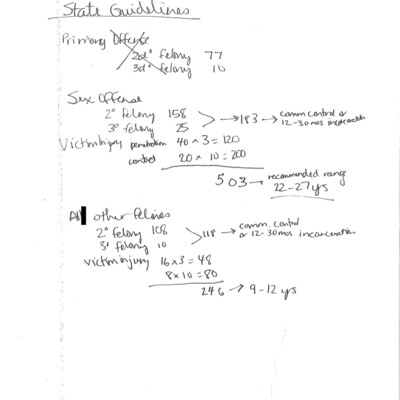 State Guidelines
Primary Offense
2d° felony 77
3d° felony 10
Sex Offense
2° felony 158
3° felony 25
> → 183 → comm control or
12-30 mos incarceration
Victim Injury penetration 40 x 3 = 120
contact 20 x 10 = 200
503 → recommended range
22-27 yrs
All other felonies
2° felony 108
3° felony 10
> 118 → comm. control
or 12-30 mos incarceration
victim injury 16 x 3 = 48
8 x 10 = 80
246 → 9-12 yrs